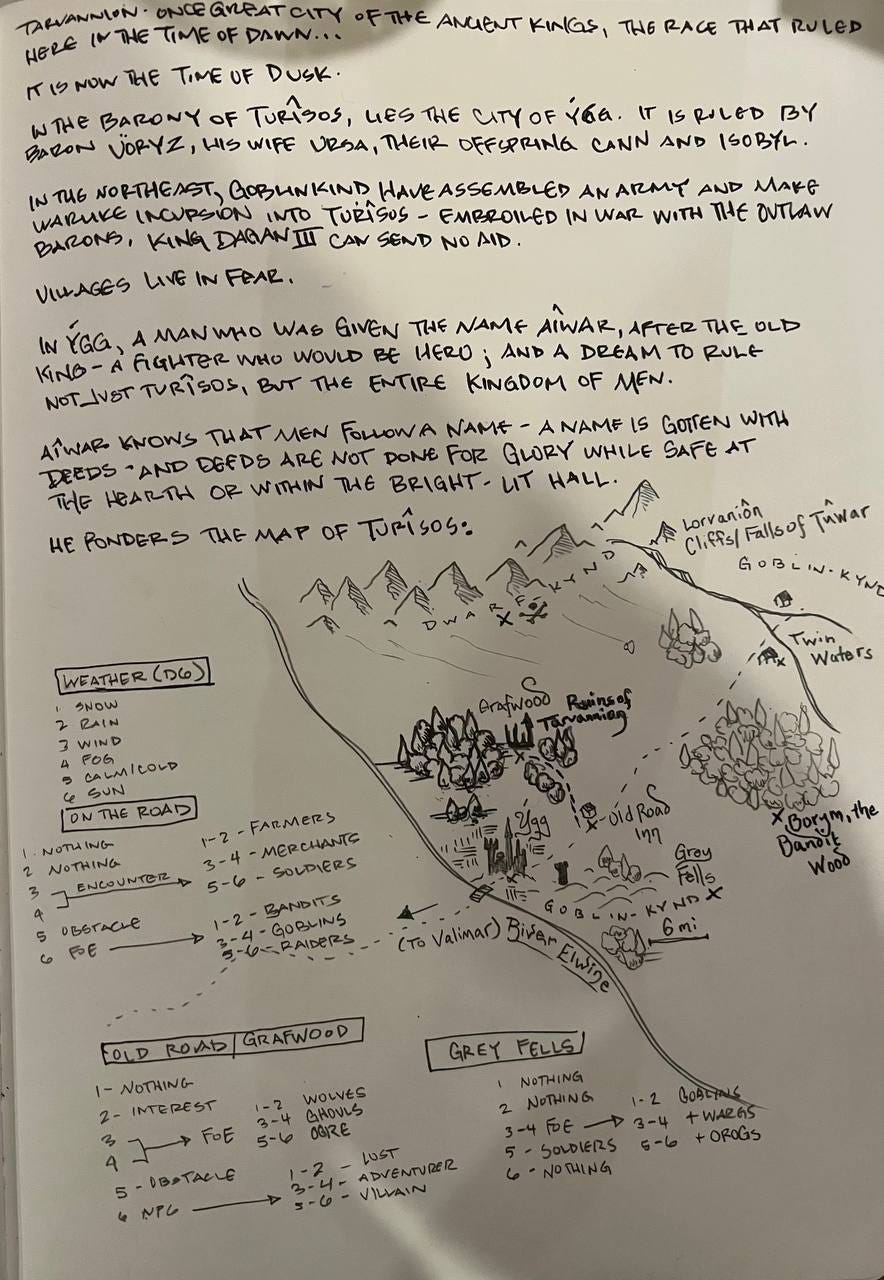 TARVANNION. ONCE GREAT CITY OF THE ANCIENT KINGS, THE RACE THAT RULED
HERE IN THE TIME OF DAWN...
IT IS NOW THE TIME OF DUSK.
IN THE BARONY OF TURÎSOS, LIES THE CITY OF ÝGG. IT IS RULED BY
BARON VÖRYZ, HIS WIFE URSA, THEIR OFFSPRING CANN AND ISOBYL.
IN THE NORTHEAST, GOBLINKIND HAVE ASSEMBLED AN ARMY AND MAKE
WARLIKE INCURSION INTO TURÎSOS - EMBROILED IN WAR WITH THE OUTLAW
BARONS, KING DAGAN III CAN SEND NO AID.
VILLAGES LIVE IN FEAR.
IN ÝGG, A MAN WHO WAS GIVEN THE NAME AÎWAR, AFTER THE OLD
KING - A FIGHTER WHO WOULD BE HERO; AND A DREAM TO RULE
NOT JUST TURÎSOS, BUT THE ENTIRE KINGDOM OF MEN.
AÎWAR KNOWS THAT MEN FOLLOW A NAME - A NAME IS GOTTEN WITH
DEEDS - AND DEEDS ARE NOT DONE FOR GLORY WHILE SAFE AT
THE HEARTH OR WITHIN THE BRIGHT-LIT HALL.
HE PONDERS THE MAP OF TURÎSOS:
Lorvaniôn
Cliffs/Falls of Tûwar
GOBLIN-KYND
DWARF-KYND
X
Twin
Waters
Grafwood
Ruins of
Tarvannion
Ygg
Old Road
Inn
X Borym, the
Bandit
Wood
Grey
Fells
GOBLIN-KYND X
6 mi
(To Valimar)
River Elwine
WEATHER (D6)
1 SNOW
2 RAIN
3 WIND
4 FOG
5 CALM/COLD
6 SUN
ON THE ROAD
1. NOTHING
2 NOTHING
3
4
ENCOUNTER
1-2 - FARMERS
3-4 - MERCHANTS
5-6 - SOLDIERS
5 OBSTACLE
6 FOE
1-2 - BANDITS
3-4 - GOBLINS
5-6 - RAIDERS
OLD ROAD | GRAFWOOD
1 - NOTHING
2 - INTEREST
3
4
FOE
1-2 WOLVES
3-4 GHOULS
5-6 OGRE
5 - OBSTACLE
6 NPC
1-2 - LOST
3-4 - ADVENTURER
5-6 - VILLAIN
GREY FELLS
1 NOTHING
2 NOTHING
3-4 FOE
1-2 GOBLINS
3-4 + WARGS
5-6 + OROGS
5 - SOLDIERS
6 - NOTHING